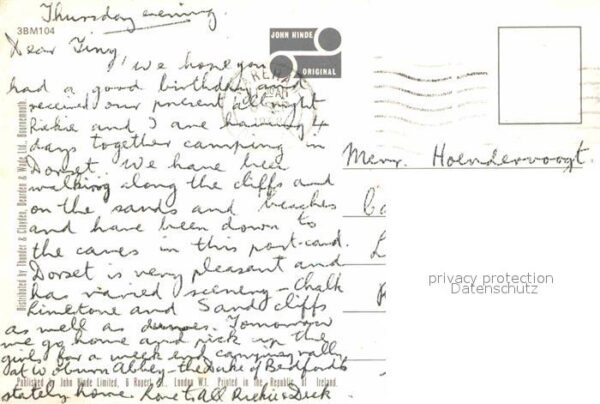 Thursday evening.
3BM104
JOHN HINDE
ORIGINAL
Dear Tiny,
We hope you
had a good birthday and
received our present all right
Rickie and I are having 4
days together camping in
Dorset. We have been
walking along the cliffs and
on the sands and beaches
and have been down to
the caves in this post-card.
Dorset is very pleasant and
has varied scenery - Chalk
limestone and Sand cliffs
as well as dunes. Tomorrow
we go home and pick up the
girls for a week end camping rally
at Woburn Abbey - the Duke of Bedford's
stately home. Love to All Rickie & Dick
Mevr. Hoendervoogt.
privacy protection
Datenschutz
Distributed by Thunder & Clayden, Dearden & Wade Ltd., Bournemouth.
Published by John Hinde Limited, 6 Rupert St., London W1. Printed in the Republic of Ireland.